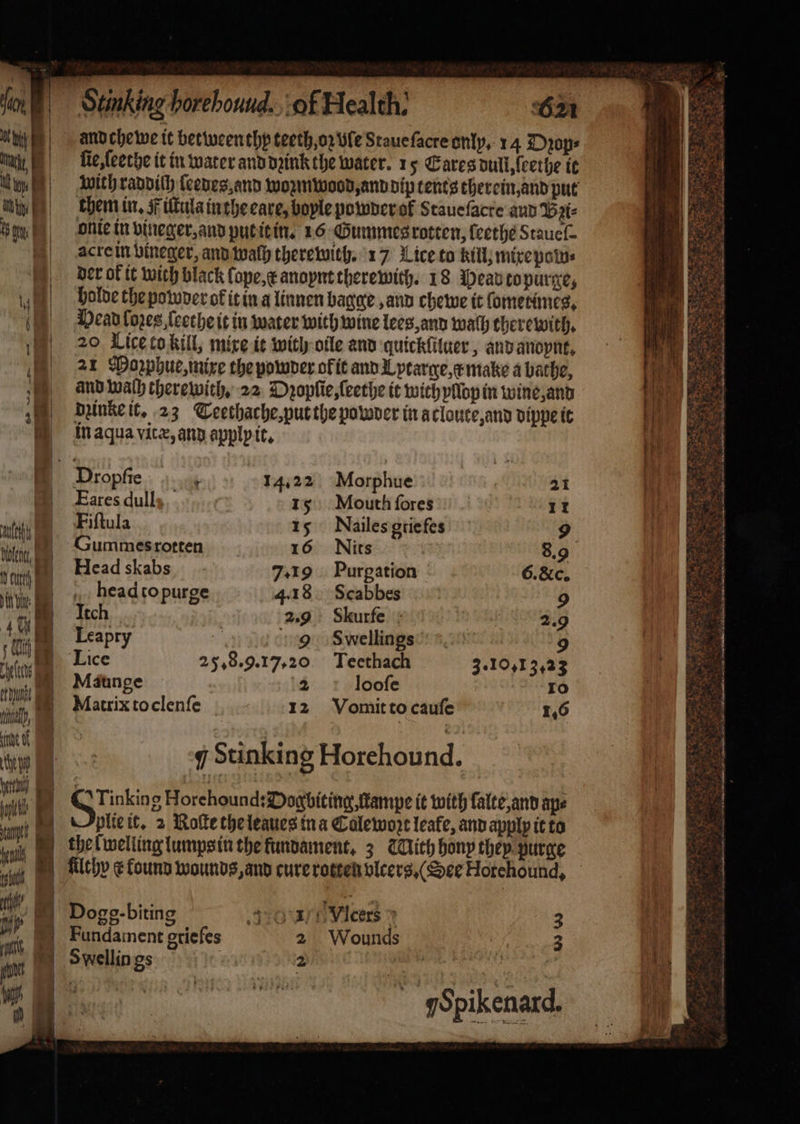 Stinking horehound. of Health. 621
and chewe it betweenthy teeth,or vse Stauesacre only. 14 Drop-
sie,seethe it in water and drink the water. 15 Eares dull,seethe it
with raddish seedes,and wormwood,and dip tents therein,and put
them in. Fistula in the eare, boyle powder of Stauesacre and Bri-
onie in vineger,and put it in. 16 Gummes rotten, seethe Staues-
acre in vineger, and wash therewith. 17 Lice to kill, mixe pow-
der of it with black sope,& anoynt therewith. 18 Head to purge,
holde the powder of it in a linnen bagge ,and chewe it sometimes.
Head sores,seethe it in water with wine lees,and wash therewith.
20 Lice to kill, mixe it with oile and quicksiluer , and anoynt.
21 Morphue,mixe the powder of it and Lytarge,& make a bathe,
and wash therewith. 22 Dropsie,seethe it with ysop in wine,and
drinke it. 23 Teethache,put the powder in a cloute,and dippe it
in aqua vitæ, and apply it.
Dropsie 14,22 Morphue 21
Eares dull, 15 Mouth sores 11
Fistula 15 Nailes griefes 9
Gummes rotten 16 Nits 8.9
Head skabs 7.19 Purgation 6.&c.
head to purge 4.18 Scabbes 9
Itch 2.9 Skurfe 2.9
Leapry 9 Swellings 9
Lice 25,8.9.17,20 Teethach 3.10,13,23
Maunge 2 loose 10
Matrix to clense 12 Vomit to cause 1,6
¶ Stinking Horehound.
STinking Horehound: Dogbiting,stampe it with salte,and ap-
plie it. 2 Roste the leaues in a Colewort leafe, and apply it to
the swelling lumps in the fundament. 3 With hony they purge
filthy & found wounds,and cure rotten vlcers,(See Horehound,
Dogg-biting 1 Vlcers 3
Fundament griefes 2 Wounds 3
Swellings 2
¶Spikenard.